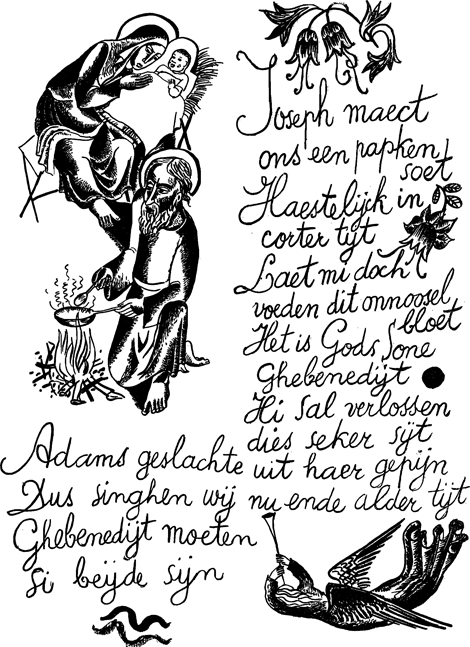 Joseph maect
ons een papken
soet
Haestelijck in
corter tijt
Laet mi doch
voeden dit onnoosel
bloet
Het is Gods Sone
Ghebenedijt
Hi sal verlossen
dies seker sijt
Adams geslachte uit haer gepijn
Dus singhen wij nu ende alder tijt
Ghebenedijt moeten
si beijde sijn